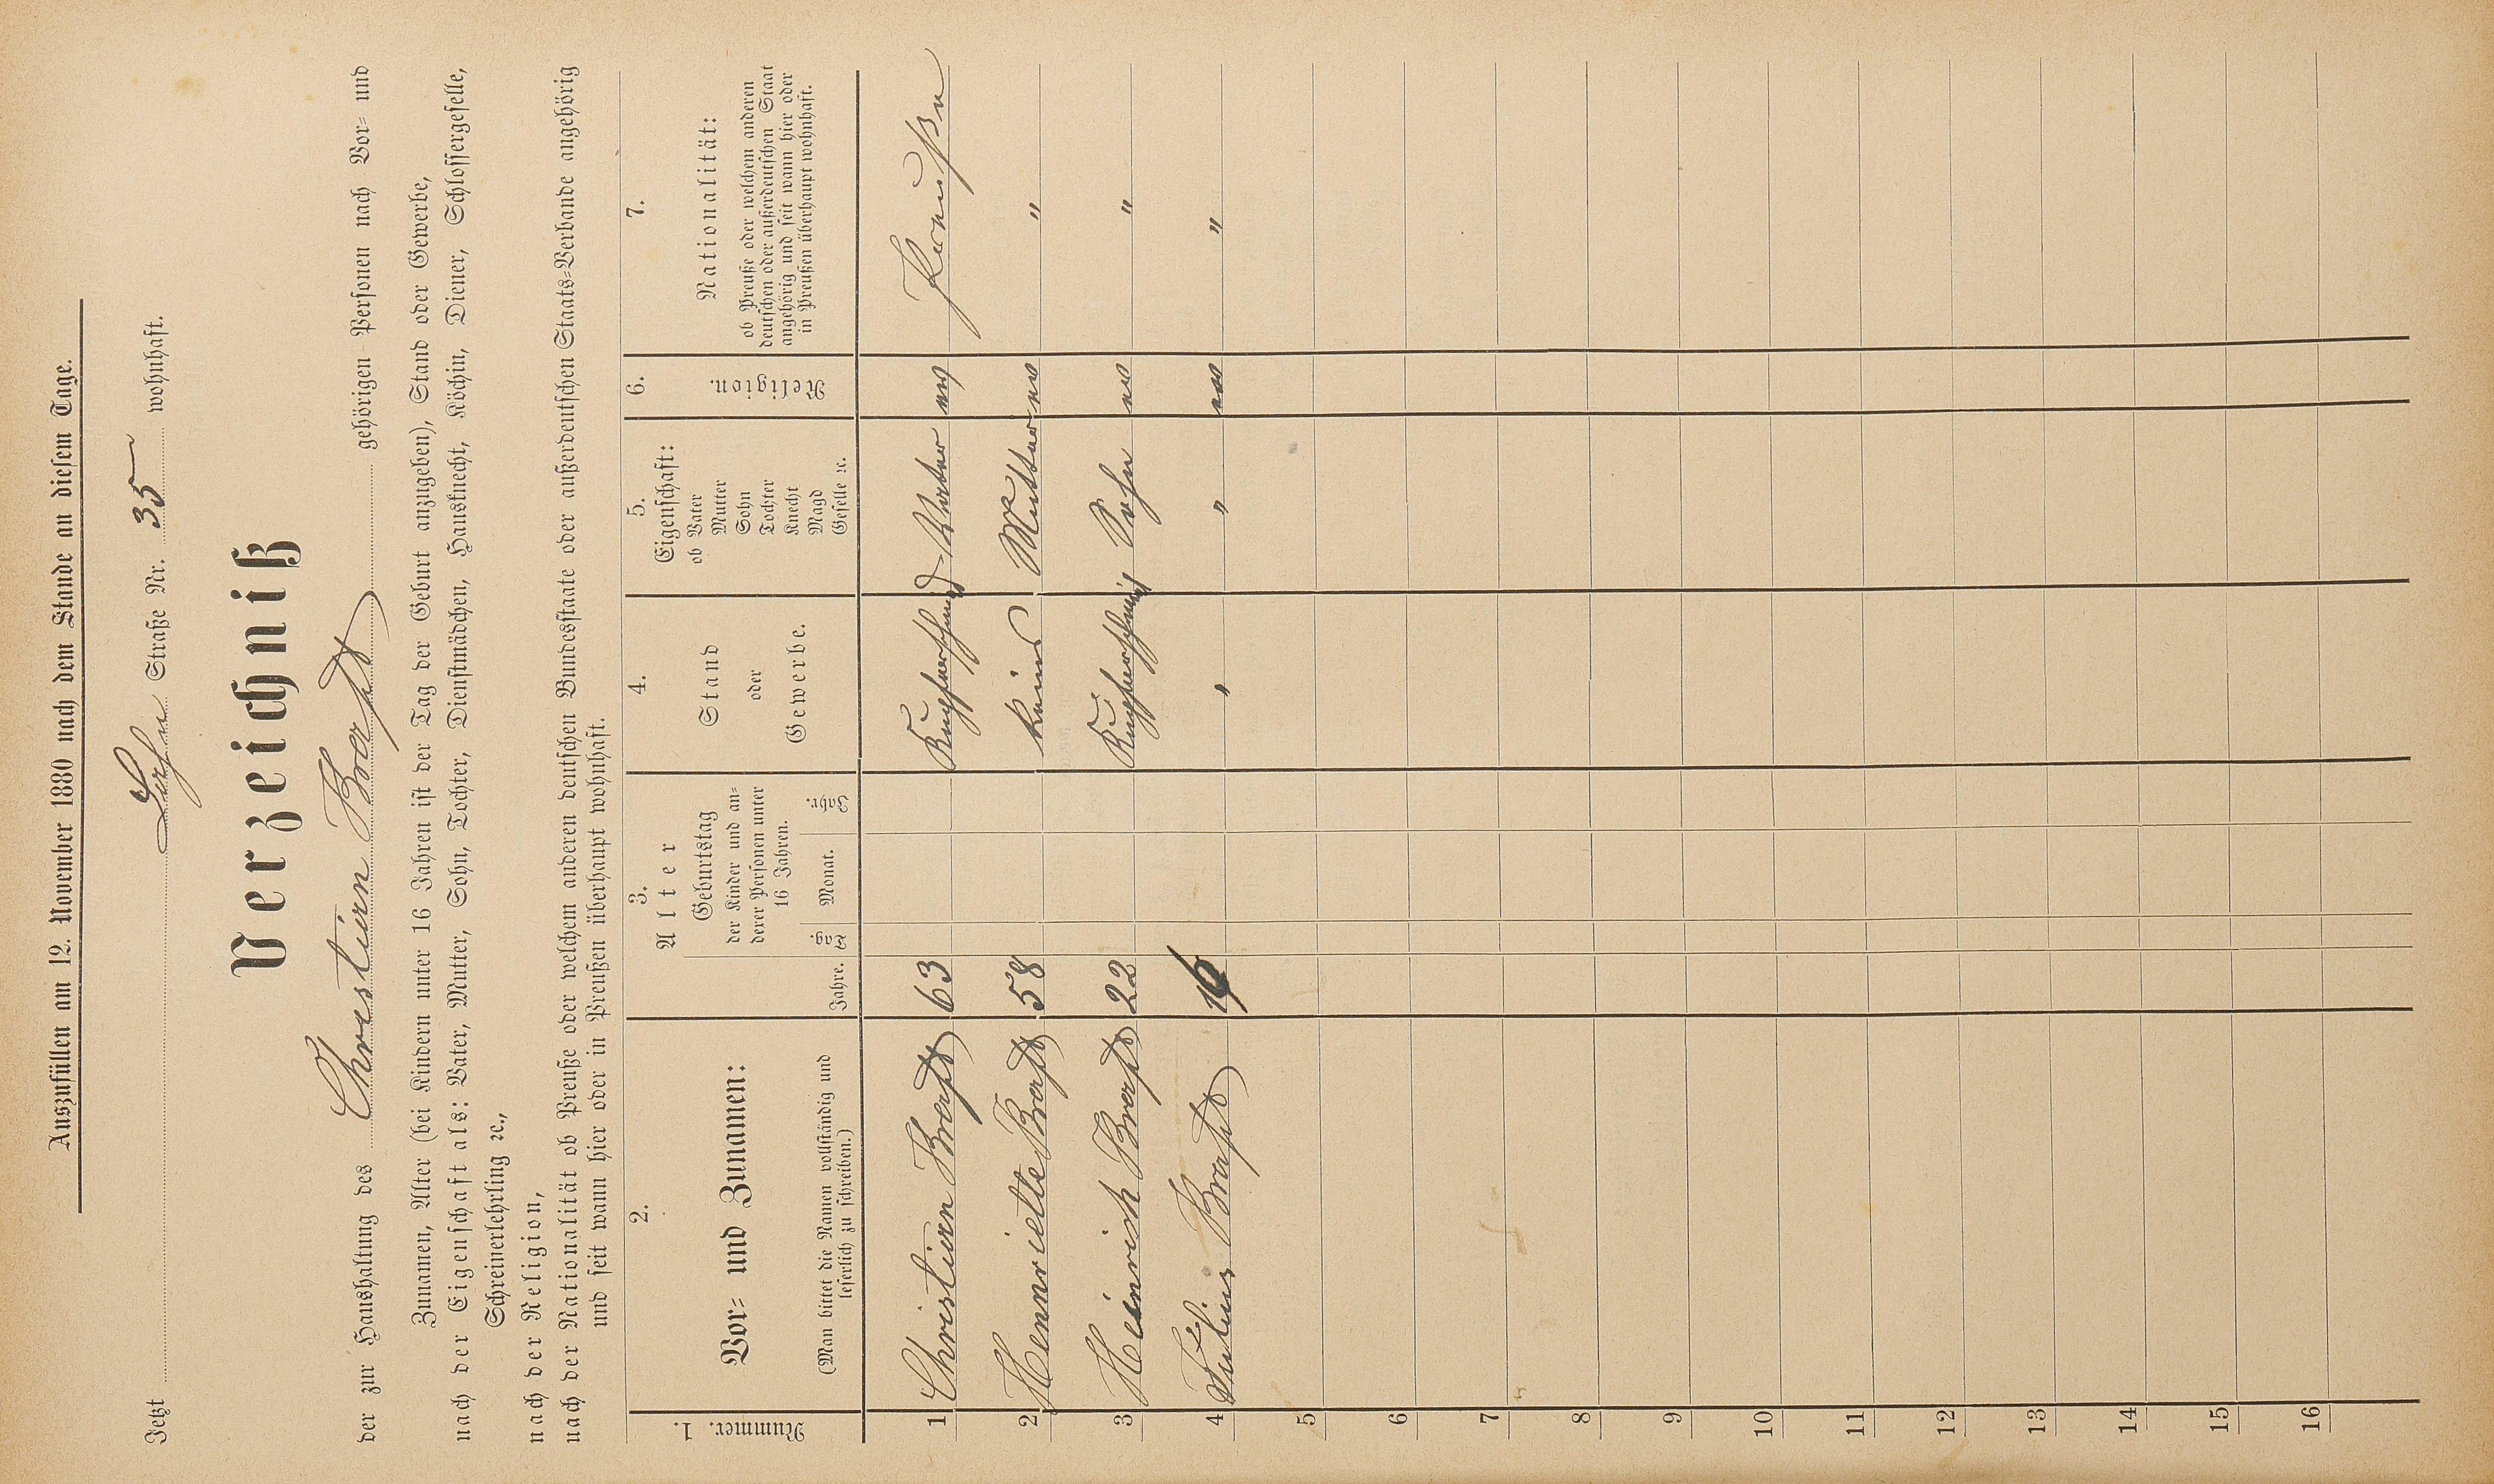 Auszufüllen am 12. November 1880 nach dem Stande an diesem Tage.
Jetzt Lehn Straße Nr. 35 wohnhaft.
Verzeichniß
der zur Haushaltung des Christian gehörigen Personen nach Vor- und
Zunamen, Alter (bei Kindern unter 16 Jahren ist der Tag der Geburt anzugeben), Stand oder Gewerbe,
nach der Eigenschaft als: Vater, Mutter, Sohn, Tochter, Dienstmädchen, Hausknecht, Köchin, Diener, Schlossergeselle,
Schreinerlehrling ꝛc.,
nach der Religion,
nach der Nationalität ob Preuße oder welchem anderen deutschen Bundesstaate oder außerdeutschen Staats-Verbande angehörig
und seit wann hier oder in Preußen überhaupt wohnhaft.
Nummer. 1.
2.
Vor- und Zunamen:
(Man bittet die Namen vollständig und
leserlich zu schreiben.)
3.
Alter
Jahre.
Geburtstag
der Kinder und an-
derer Personen unter
16 Jahren.
Tag. Monat. Jahr.
4.
Stand
oder
Gewerbe.
5.
Eigenschaft:
ob Vater
Mutter
Sohn
Tochter
Knecht
Magd
Geselle ꝛc.
6.
Religion.
7.
Nationalität:
ob Preuße oder welchem anderen
deutschen oder außerdeutschen Staat
angehörig und seit wann hier oder
in Preußen überhaupt wohnhaft.
1 Christian 63 Vater ev Preuße
2 Henriette 58 keins Mutter ev "
3 Heinrich 22 Sohn ev "
4 Julius 16 " " ev "
5
6
7
8
9
10
11
12
13
14
15
16